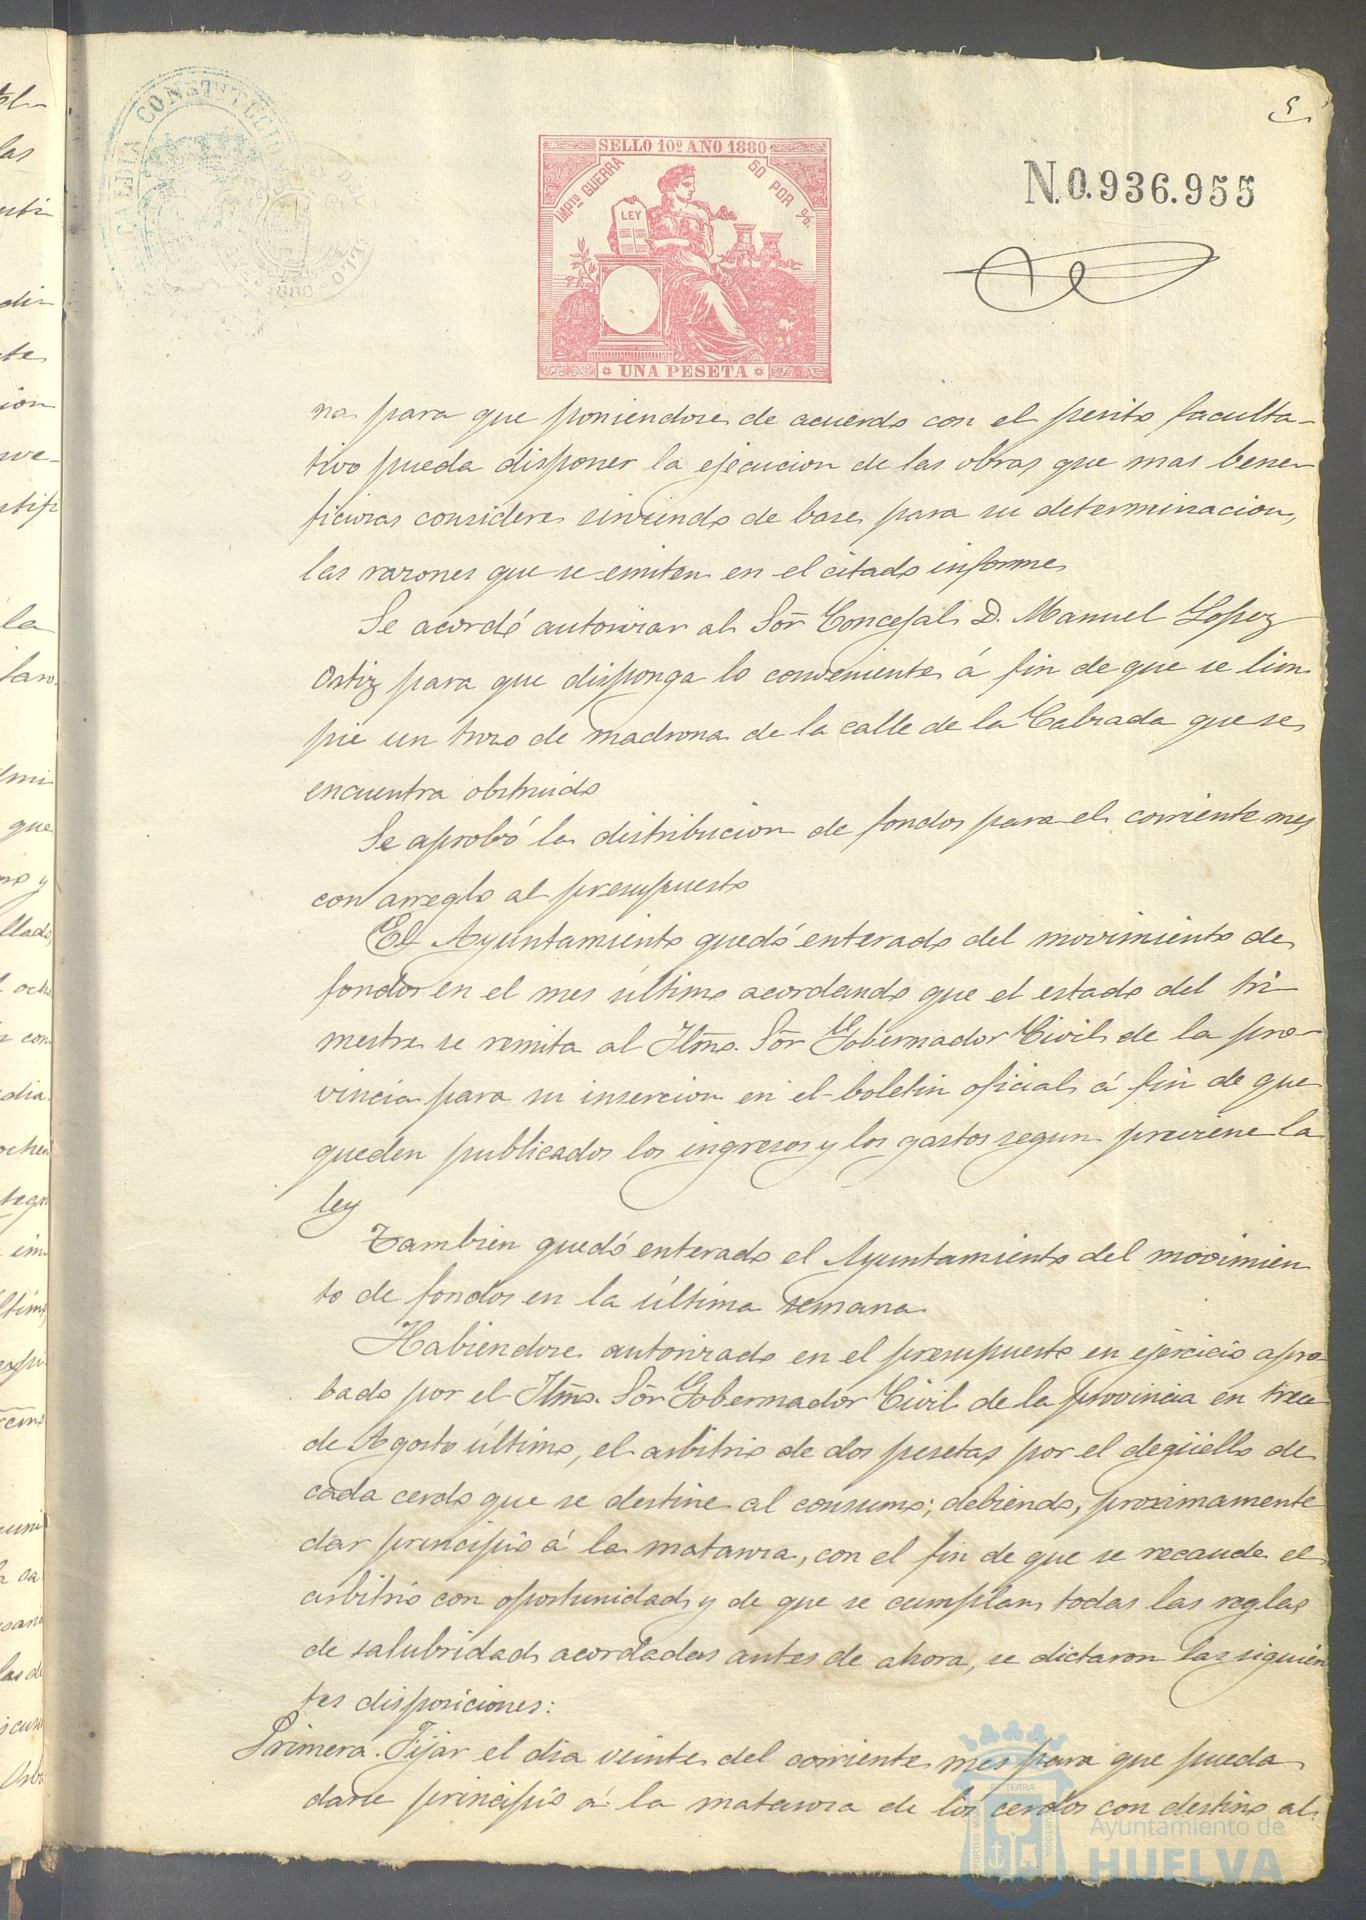 5
ALCALDIA CONSTITUCIONAL
1880
SELLO 10º AÑO 1880
IMPTO GUERRA 50 POR %.
LEY
UNA PESETA
N.0.936.955
na para que poniendose de acuerdo con el perito faculta-
tivo pueda disponer la ejecucion de las obras que mas bene-
ficiosas considere sirviendo de base para su determinacion,
las razones que se emiten en el citado informe
Se acordó autorizar al Sõr Concejal D. Manuel Lopez
Ortiz para que disponga lo conveniente á fin de que se lim
pie un trozo de madrona de la calle de la Calzada que se
encuentra obstruido
Se aprobó la distribucion de fondos para el corriente mes
con arreglo al presupuesto
El Ayuntamiento quedó enterado del movimiento de
fondos en el mes último acordando que el estado del tri-
mestre se remita al Iltmo. Sõr Gobernador Civil de la pro-
vincia para su insercion en el boletin oficial á fin de que
queden publicados los ingresos y los gastos segun previene la
ley
Tambien quedó enterado el Ayuntamiento del movimien
to de fondos en la última semana
Habiendose autorizado en el presupuesto en ejercicio apro-
bado por el Iltmo. Sõr Gobernador Civil de la provincia en trece
de Agosto último, el arbitrio de dos pesetas por el degüello de
cada cerdo que se destine al consumo; debiendo, proximamente
dar principio á la matanza, con el fin de que se recaude el
arbitrio con oportunidad y de que se cumplan todas las reglas
de salubridad acordadas antes de ahora, se dictaron las siguien
tes disposiciones:
Primera. Fijar el dia veinte del corriente mes para que pueda
darse principio á la matanza de los cerdos con destino al
Ayuntamiento de
HUELVA